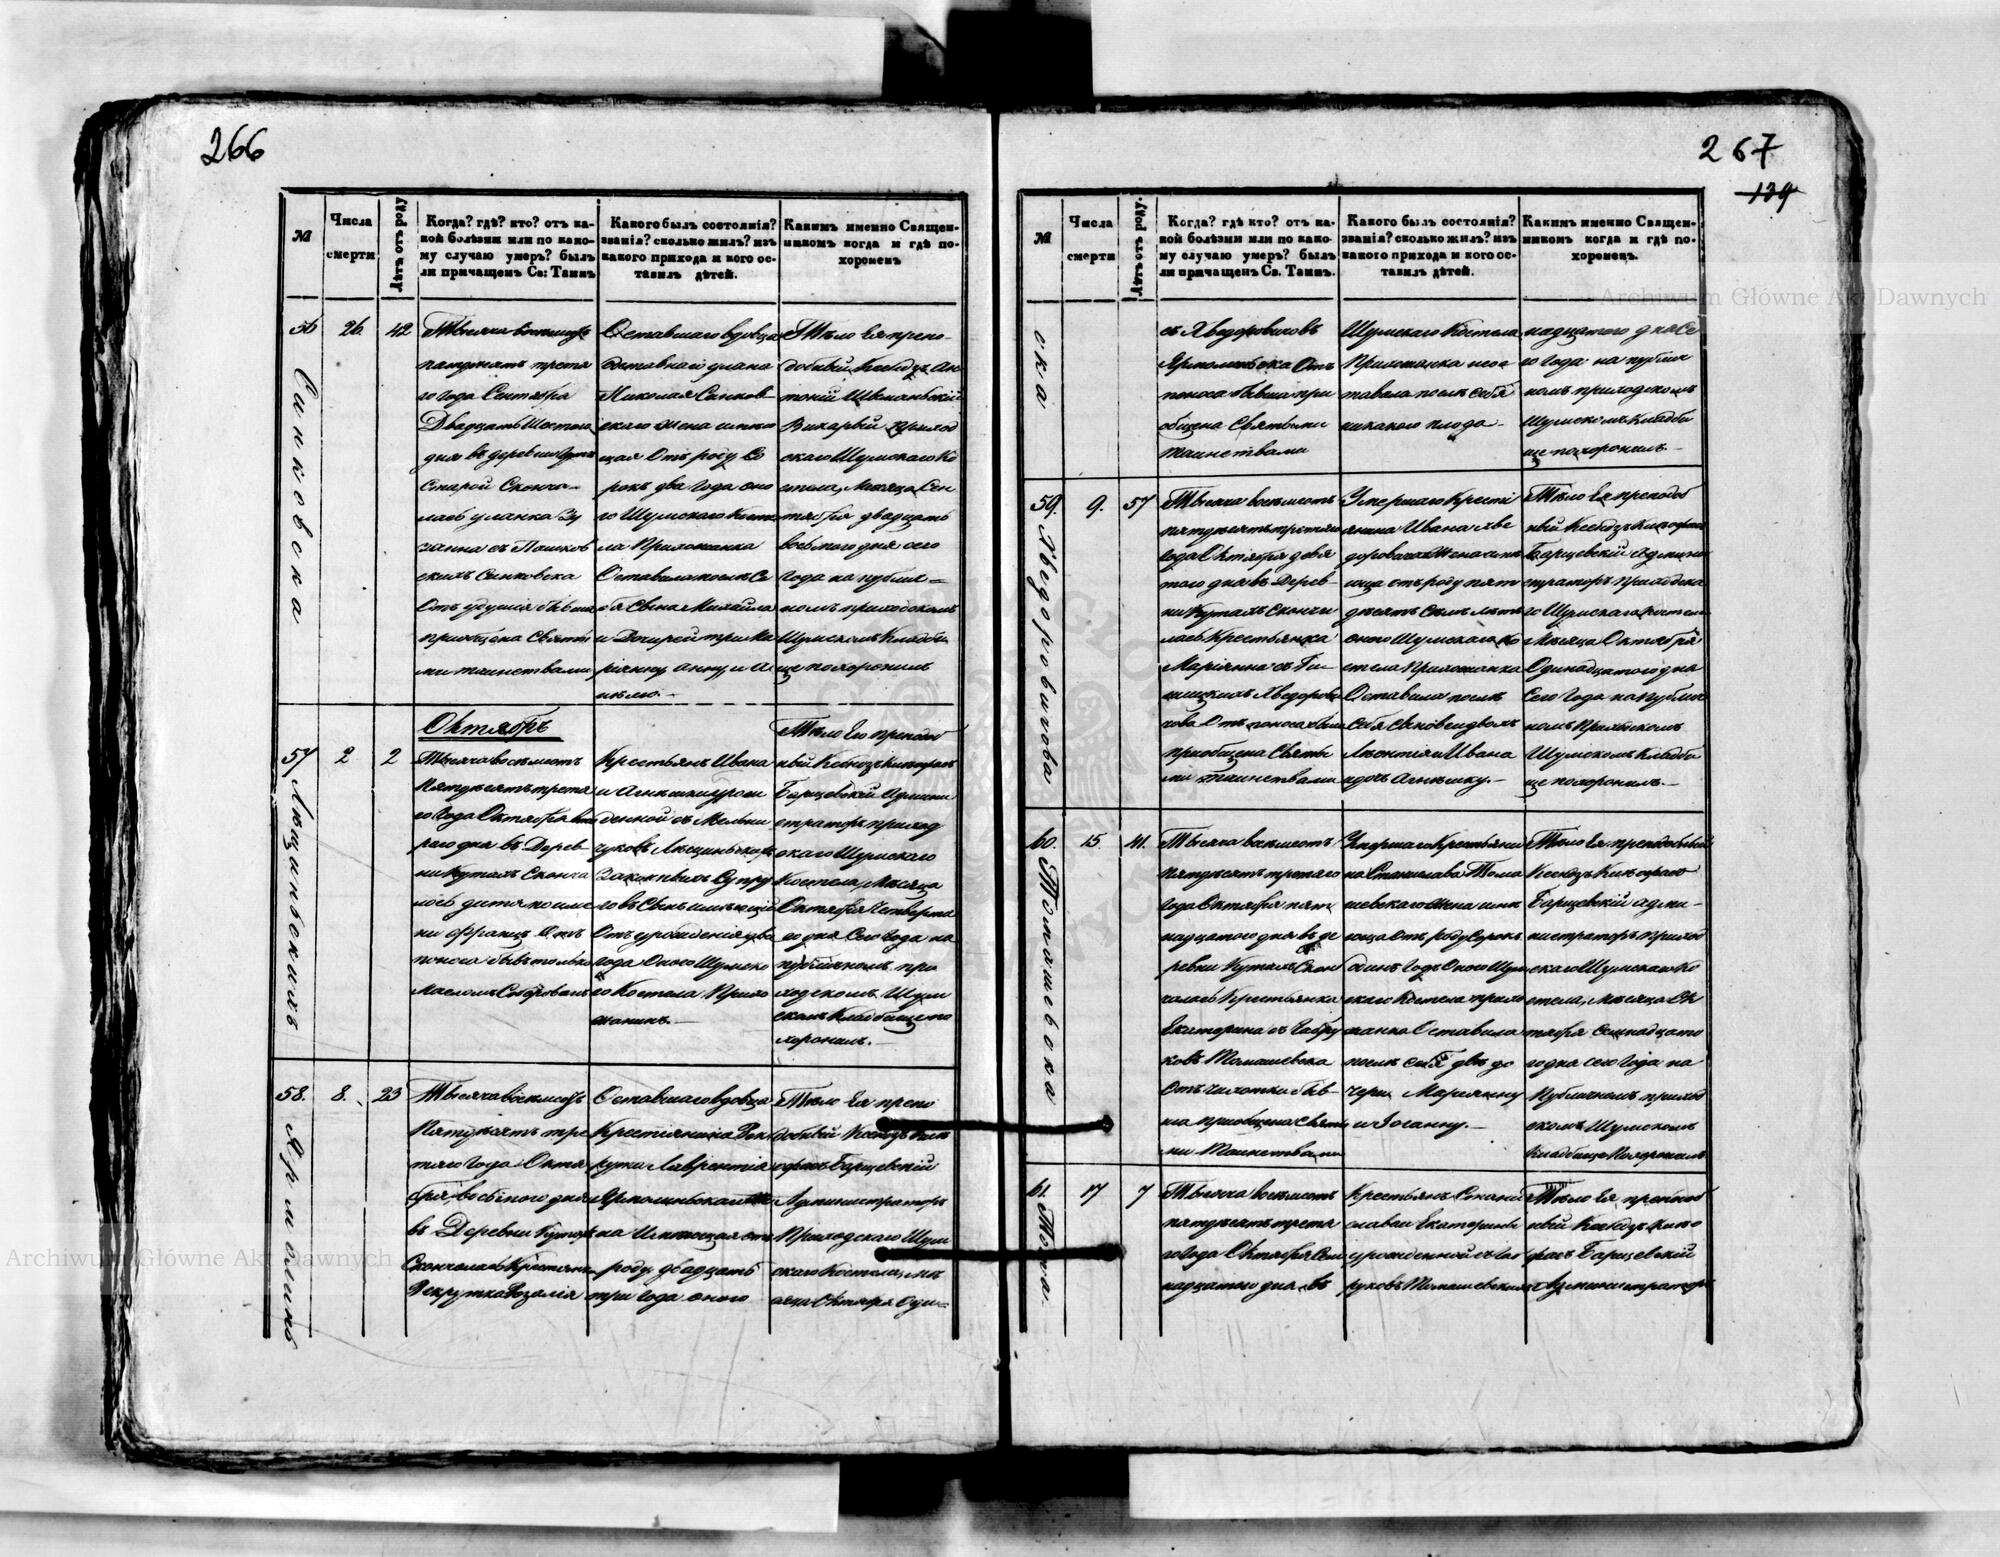 266
№
Числа
смерти
Лѣтъ отъ роду
Когда? гдѣ? кто? отъ ка-
кой болѣзни или по како-
му случаю умеръ? былъ
ли причащенъ Св: Таинъ
Какого былъ состоянія?
званія? сколько жилъ? изъ
какого прихода и кого ос-
тавилъ дѣтей.
Какимъ именно Священ-
никомъ когда и гдѣ по-
хороненъ
56
26
42
Синковска
Тысяча восемьсотъ
пятдесятъ третя
го года Сентября
Двадцать Шестого
дня въ деревни
Старой Сконча-
лась уланка Зу
занна съ Пашков
скихъ Синковска
Отъ удушія бывша
пріобщена Святы
ми таинствами
Оставшаго вдовца
отставнаго улана
Николая Синков-
скаго жена имѣю
щая Отъ роду Со
рокъ два года оно
го Шумскаго Косте
ла Прихожанка
Оставила послѣ Се
бя Сына Михаила
и Дочерей три Ма
ріянну, Анну, и А
нѣлю.-
Тѣло Ея препо-
добный Ксендзъ Ан
тоній
Викарый приход
скаго Шумскаго Ко
стела, Мѣсяца Сен
тября двадцать
восьмого дня сего
года на публич=
номъ приходскомъ
Шумскомъ Кладби
ще похоронилъ
Октябрь
57
2
2
Лѣщинскихъ
Тысяча восемьсотъ
Пятдесятъ третя
го Года Октября вто
раго дня въ Дерев-
ни Кутахъ Сконча
лось дитя по име
ни Францъ Отъ
поноса бывъ только
Масломъ Соборованъ
Крестьянъ Ивана
и Агнѣшки урож
денной съ Мельни
чуковъ Лѣщинскихъ
Законныхъ Супру
говъ Сынъ имѣющій
Отъ урожденія два
года Оного Шумска
го Костела Прихо
жанинъ.-
Тѣло Его преподоб
ный Ксендзъ Никифоръ
Барщевскій Админи
страторъ приход
скаго Шумскаго
Костела, Мѣсяца
Октября Четверта
го дня Сего Года на
публичномъ при
ходскомъ Шум
скомъ Кладбище по
хоронилъ.-
58.
8.
23
Ярмолинс
Тысяча восемьсотъ
Пятдесятъ тре
тяго Года Октя
бря восьмого дня
въ Деревни Кутахъ
Скончалась Крестьян
Рекрутка Розалія
Оставшаго вдовца
Крестіянина Рек
рута Лаврентія
Ярмолинскаго
на Имѣющая отъ
роду двадцать
три года оного
Тѣло Ея препо
добный Ксендзъ Ник
ифоръ Барщевскій
Администраторъ
Приходскаго Шум
скаго Костела, мѣ
сяца Октября Оди=
267
139
№
Числа
смерти
Лѣтъ отъ роду.
Когда? гдѣ кто? отъ ка-
кой болѣзни или по како-
му случаю умеръ? былъ
ли причащенъ Св. Таинъ.
Какого былъ состоянія?
званія? сколько жилъ? изъ
какого прихода и кого ос-
тавилъ дѣтей.
Какимъ именно Священ-
никомъ когда и гдѣ по-
хороненъ.
ска
съ Хведоровичовъ
Ярмолинська Отъ
поноса бывша при
общена Святыми
таинствами
Шумскаго Костела
Прихожанка неос
тавила послѣ себя
никакого плода-
надцатого дня Се
го года на публич
номъ приходскомъ
Шумскомъ Кладби
ще похоронилъ.-
59.
9.
57
Хведоровичова
Тысяча восемьсотъ
пятдесятъ третяго
года Октября девя
того дня въ Дерев-
ни Кутахъ Сконча
лась Крестьянка
Маріянна съ
Хведорови
чова Отъ поноса бывша
пріобщена Святы
ми таинствами
Умершаго Кресті
янина Ивана Хве
доровича Жена имѣ
юща отъ роду пят
десятъ семъ лѣтъ
оного Шумскаго Ко
стела Прихожанка
Оставила послѣ
Себя Сыновей двохъ
Леонтія и Ивана
и дочь Агнѣшку.-
Тѣло Ея преподоб
ный Ксендзъ Никифоръ
Барщевскій Админи
стpаторъ Приходска
го Шумскаго Костела
Мѣсяца Октября
Одинадцатого дня
Сего Года на Публич
номъ Приходскомъ
Шумскомъ Кладби
ще похоронилъ.-
60.
15.
41.
Томашевска
Тысяча восемьсотъ
пятдесятъ третяго
Года Октября пят
надцатого дня въ де
ревни Кутахъ Скон
чалась Крестьянка
Екатерина съ Гавру
ковъ Томашевска
Отъ чихотки быв-
ша пріобщена Святы
ми Таинствами
Умершаго Крестьяни
на Станислава Тома
шевскаго жена имѣ
юща Отъ роду Сорокъ
одинъ годъ Оного Шум
скаго Костела прихо
жанка Оставила
послѣ себя двѣ до
чери Маріянну
и Іоганну.-
Тѣло Ея преподобный
Ксендзъ Никифоръ
Барщевскій адми-
нистраторъ Приход
скаго Шумскаго Ко
стела, Мѣсяца Ок
тября Семнадцато
го дня сего года на
Публичномъ приход
скомъ Шумскомъ
Кладбище Похоронилъ
61.
17
7
Тысяча восемьсотъ
пятдесятъ третя
го Года Октября Сем
надцатого дня въ
Крестьянъ Стани
слава и Екатерины
урожденной съ Гав
руковъ Томашевскихъ
Тѣло Ея преподоб
ный Ксендзъ Ники
форъ Барщевскій
Администраторъ
Archiwum Główne Akt Dawnych
Archiwum Główne Akt Dawnych